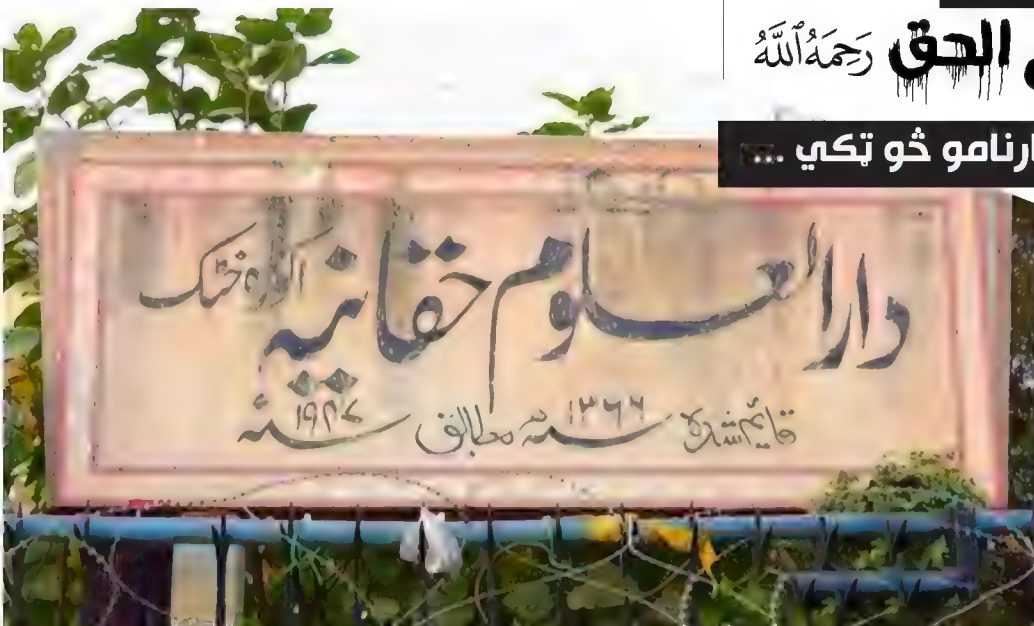 الحق رَحِمَهُ ٱللَّهُ
ارنامو څو ټکي ...
دارالعلوم حقانیہ اکوڑہ خٹک
قائم شدہ ۱۳۶۶ سنہ مطابق ۱۹۴۷ سنہ